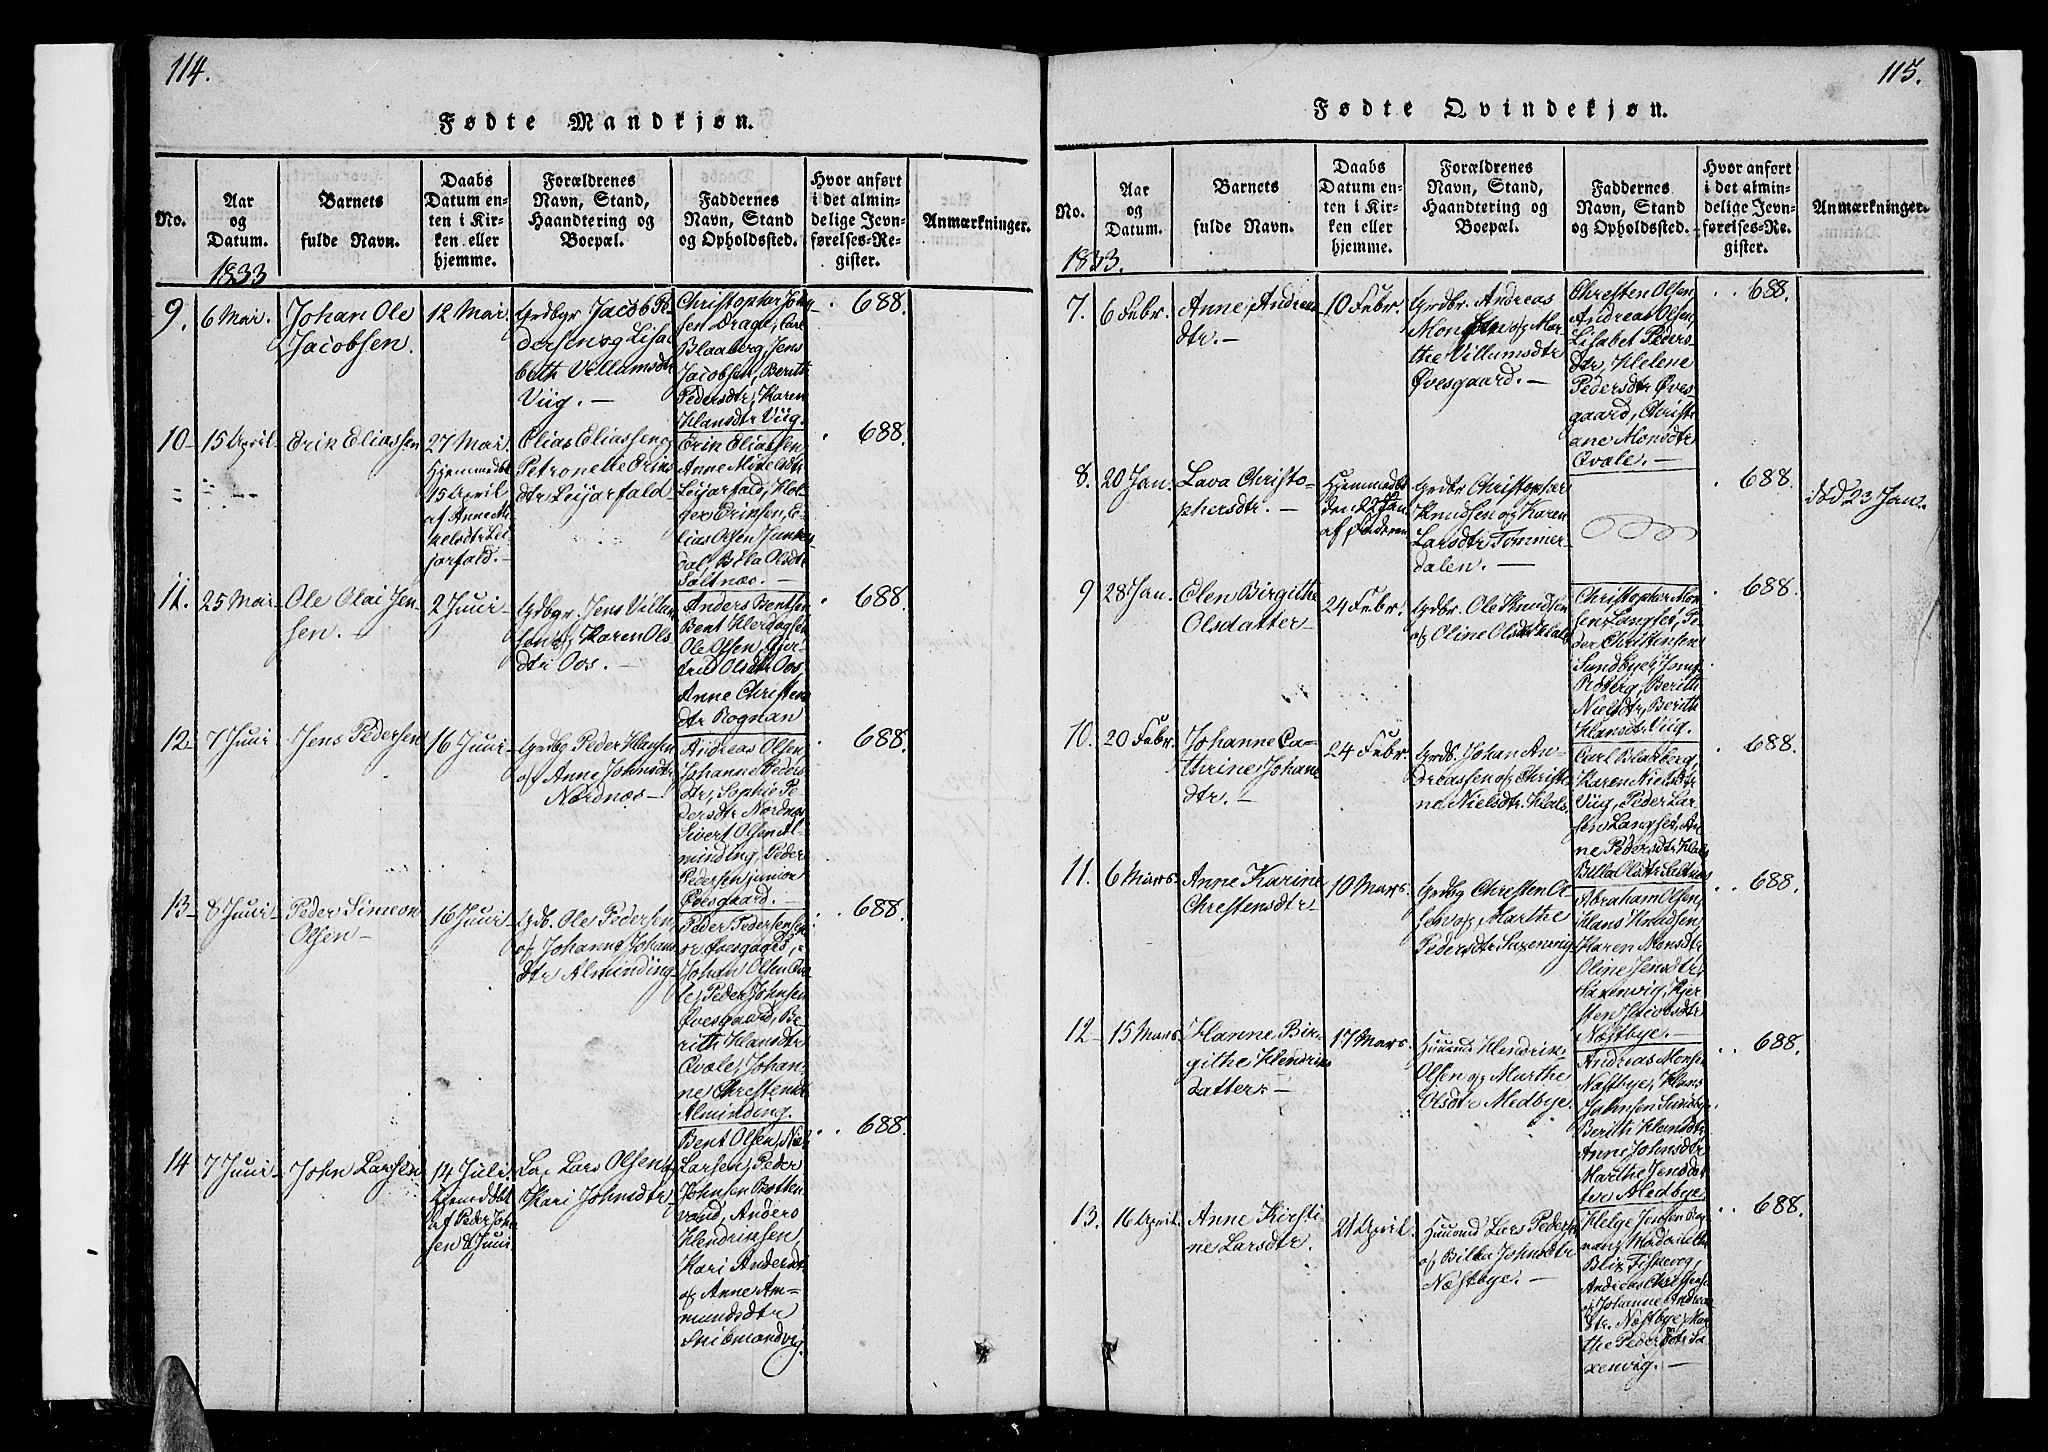 114.
Fødte Mandkjøn.
No.
Aar
og
Datum.
Barnets
fulde Navn.
Daabs
Datum en-
ten i Kir-
ken eller
hjemme.
Forældrenes
Navn, Stand,
Haandtering og
Boepæl.
Faddernes
Navn, Stand
og Opholdssted.
Hvor anført
i det almin-
delige Jevn-
førelses-Re-
gister.
Anmærkninger.
1833
9.
6 Mai.
Johan Ole
Jacobsen.
12 Mai.
Grdbgr Jacob Pe
dersen og Lisa
beth Vellumsdtr
Viig. —
Christopher Joh
sen Drage, Carl
Blaaberg, Jens
Jacobsen, Berith
Pedersdtr, Karen
Hansdtr Viig.
688.
10-
15 April
Erik Eliassen
27 Mai.
Hjemmedøbt
15 April
af Anne Mi
kelsdtr Lei
jarfald. -
Elias Eliassen og
Petronelle Eriks
dtr Leijarfald
Erik Eliassen,
Leijarfald, Hol
ger Eriksen, E
lias Olsen Junker
dal, Bila Olsdtr
Saltnæs. —
688.
11.
25 Mai
Ole Olai Jen
sen. -
2 Juni -
Grdbgr. Jens Villum
sen og Karen Ols
dtr Oos. —
Anders Bentsen
Bent Herdagsen
Ole Olsen, Gjer-
trud Olsdtr Oos,
Anne Christens
dtr Rognan
688.
12-
7 Juni
Jens Pedersen
16 Juni
Grdbg Peder Hansen
og Anne Johnsdtr
Nordnæs -
Andreas Olsen
Johanne Peders
dtr, Sophie Pe
dersdtr Nordnæs
Sivert Olsen Al
minding, Peder
Pedersen junior
Øvesgaard. —
688.
13-
8 Juni
Peder Simeon
Olsen -
16 Juni
Grdb. Ole Pedersen
og Johanne Johans
dtr Alminding
Peder Pedersen se
Johan Olsen Qva
le, Peder Johnsen
Øvesgaard, Be
rith Hansdtr
Qvale, Johan-
ne Chrestensdtr
Alminding.
688.
14
7 Juni
John Larsen
14 Juli
Hjemmedøbt
af Peder John
sen 8 Juni
Lap Lars Olsen og
Kari Johnsdtr
Bent Olsen, Nie
Larsen, Peder
Johnsen Botten
vand, Anders
Hendriksen,
Kari Andersdtr
og Anne Am-
mundsdtr
688.
115.
Fødte Qvindekjøn.
No.
Aar
og
Datum.
Barnets
fulde Navn.
Daabs
Datum en-
ten i Kir-
ken eller
hjemme.
Forældrenes
Navn, Stand,
Haandtering og
Boepæl.
Faddernes
Navn, Stand
og Opholdssted.
Hvor anført
i det almin-
delige Jevn-
førelses-Re-
gister.
Anmærkninger.
1833.
7.
6 Febr.
Anne Andrea
dtr. -
10 Febr.
Grdbr. Andreas
Monsen og Mar
the Villumsdtr
Øvesgaard. —
Chresten Olsen,
Andreas Olsen,
Lisabet Peders
dtr, Helene
Pedersdtr Øves
gaard, Christi
ane Monsdtr
Qvale. —
688.
8.
20 Jan.
Lava Christo-
phersdtr. -
Hjemmedøbt
den 22 Jan
af Faderen
Grdbr Christopher
Knudsen og Karen
Larsdtr Tømmer-
dalen. —
688.
død 23 Jan.
9
28 Jan.
Elen Birgithe
Olsdatter
24 Febr.
Grdbr. Ole Knudsen
og Oline Olsdtr Hals
Christopher Mon
sen Langset, Pe
der Christensen
Sandbye, Jens
Roberg, Berith
Nielsdtr, Berith
Hansdtr Viig.
688.
10.
20 Febr.
Johanne Ca-
thrine Johans
dtr. -
24 Febr.
Grdb. Johan An-
dreassen og Christi
ne Nielsdtr. Hals.
Carl Blakberg,
Karen Nielsdtr
Viig, Peder Lar
sen Langset, An
ne Pedersdtr Hals
Billa Olsdtr Saltnæs
688.
11.
6 Mars.
Anne Karine
Chrestensdtr
10 Mars.
Grdbg Chresten Ol
sen og Marthe
Pedersdtr Saxenvig
Abraham Olsen,
Hans Knudsen,
Karen Monsdtr
Oline Jensdtr
Saxenvig, Kjer
sten Jacobsdtr
Næstbye. —
688.
12-
15 Mars
Hanne Bir-
githe Hendriks
datter. -
17 Mars.
Huusmd Hendrik
Olsen og Marthe
Olsdtr Medbye.
Andreas Monsen
Næstbye, Hans
Johnsen Sundbye
Berith Hansdtr
Anne Johnsdtr
Marthe Jensdat
ter Medbye.
688.
13.
16 April.
Anne Kirsti-
ne Larsdtr.
21 April.
Huusmd Lars Pedersen
og Bilka Johnsdtr
Næstbye. —
Helge Jensen Rog
Blix Fiskevog,
Andreas Christense
og Johanne Andreas
dtr. Næstbye, Mar
the Pedersdtr Sa-
xenvig. —
688.